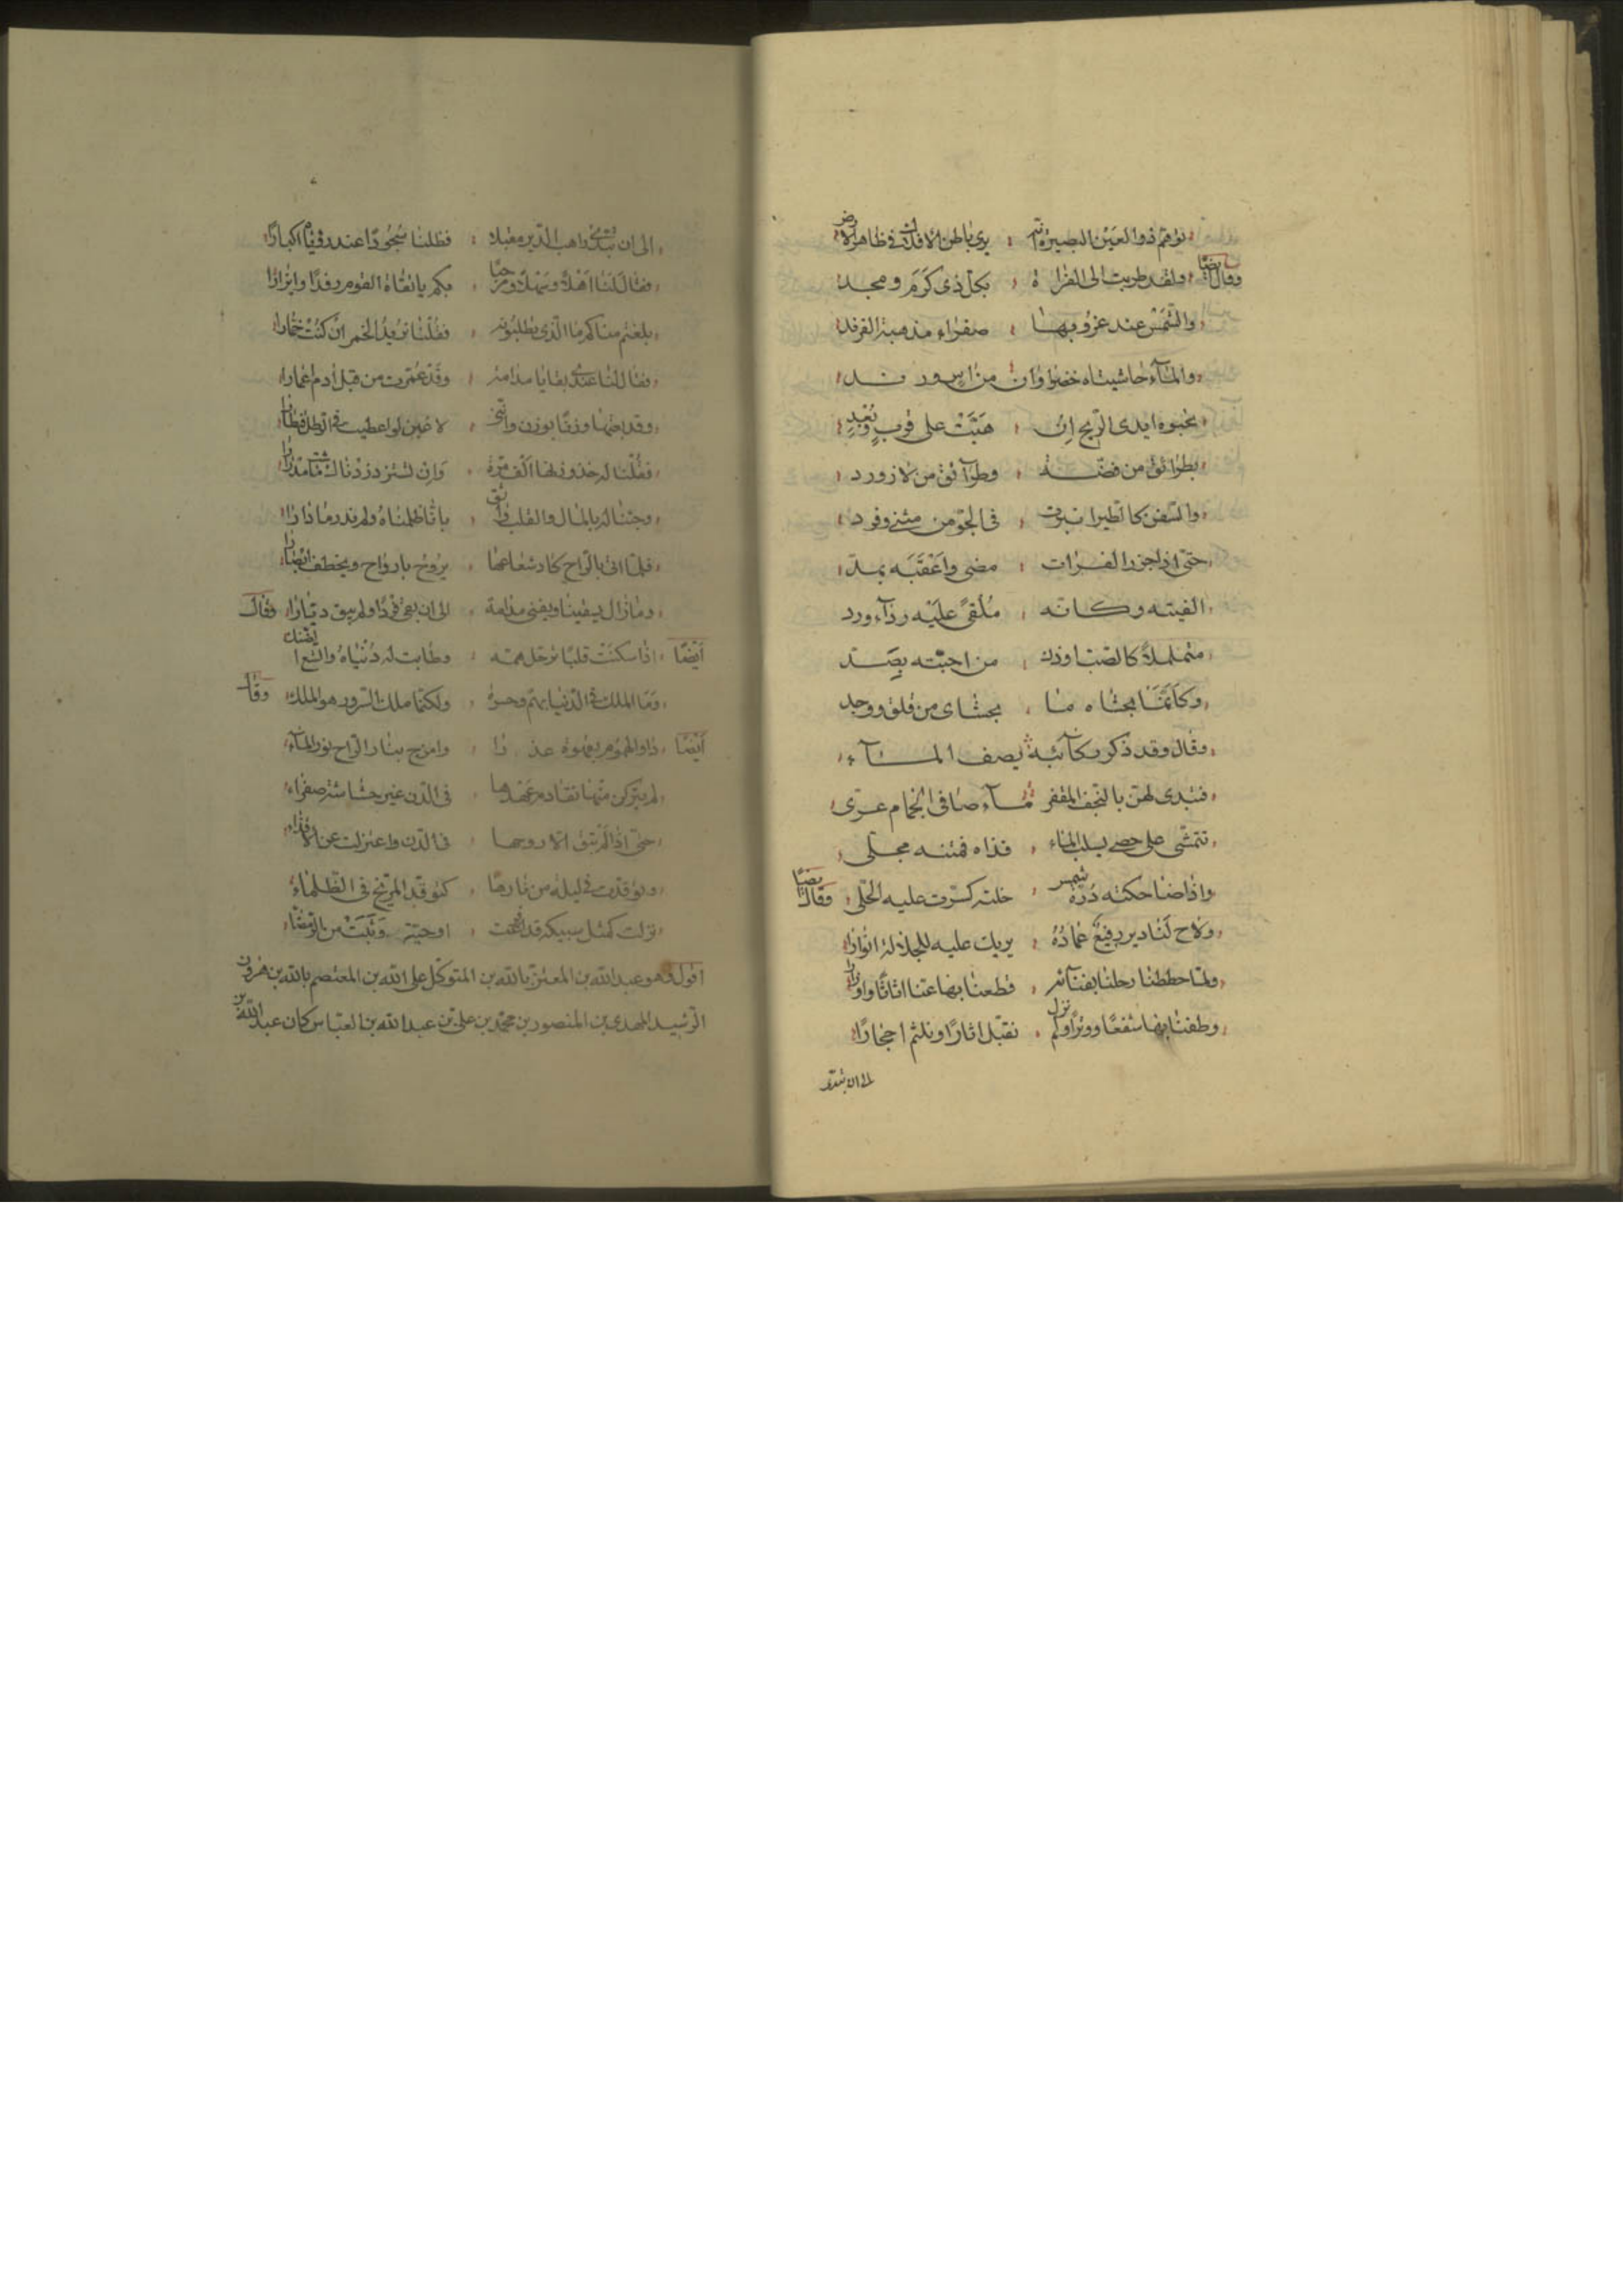 توهم ذو العين البصيرة انه يرى باطن الافلاك في ظاهر الارض
وقال ايضًا ولقد طربت الى الفرا ة بكل ذي كرم ومجد
والشمس عند غروبها صفراء مذهبة الفرند
والمآء حاشيتاه خضراوان من اس ورند
تحبوه ايدي الريح ان هبّت على قرب وبُعدِ
بطرائق من فضة وطرآئق من لازورد
والسفن كالطير انبرت في الجو من مثنى وفرد
حتى اذا جزر الفرات مضى واعقبه بمد
الفيته وكانه مُلقىً عليه رداء ورد
متململاً كالصب اوذن من احبته بصد
وكانما بحشاه ما بحشاى من قلق ووجد
وقال وقد ذكر ركآئبه يصف المآء
فتبدى لهن بالنجف المقفر مآء صافى الجمام عرى
تتمشى على حصى يسلب الماء قذاه فمتنه مجلى
واذا ضاحكته درة شمس خلته كسرت عليه الحلى وقال ايضًا
ولاح لنا دير رفيع عماده يريك عليه للجلالة انوارا
ولما حططنا رحلنا بفنآئه قطعنا بها عنا اثاثًا واوزارا
وطفنا بها شفعًا ووترًا ولم نزل نقبل اثارًا ونلثم احجارًا
الى ان تبدى
الى ان تبدى راهب الدير مقبلا فظلنا سجودًا عند رؤياه اكبارًا
فقال لنا اهلاً وسهلاً ومرحبًا بكم يا ثقاة القوم وفدًا وابرارًا
بلغتم مناكم ما الذي تطلبونه فقلنا نريد الخمر ان كنت خمارا
فقال لنا عندي بقايا مدامة وقد عمرت من قبل ادم اعمارا
لا غبن لو اعطيت في الرطل قنطارا
فقلنا له خذ وزنها الف مرة وان تستزد زدناك
وجئناك بالمال والقلب واثق بانا ظلمناه ولم ندر ماذا دارا
فلما اتى بالراح كاد شعاعها يروح بارواح ويخطف ابصارا
وما زال يسقينا ويفنى مدامة الى ان بقى فردًا ولم يبق ديّارا وقال
ايضًا اذا سكنت قلبًا ترحل همه وطابت له دنياه واتسع الضنك
وما الملك في الدنيا بهم وحسرة ولكنما ملك السرور هو الملك وقال
ايضًا داو الهموم بقهوة عذ را وامزج بنار الراح نور المآء
لم يترك منها تقادم عهدها في الدن غير حشاشة صفراء
حتى اذا لم تبق الا روحها في الدن واعتزلت عن الاقذاء
وتوقدت في ليلة من نارها كتوقد المريخ في الظلماء
نزلت كمثل سبيكة قد افرغت او حية وثبت من الرمضاء
اقول وهو عبد الله بن المعتز بالله بن المتوكل على الله بن المعتصم بالله بن هرون
الرشيد المهدى بن المنصور بن محمد بن على بن عبد الله بن العباس كان عبد الله بن